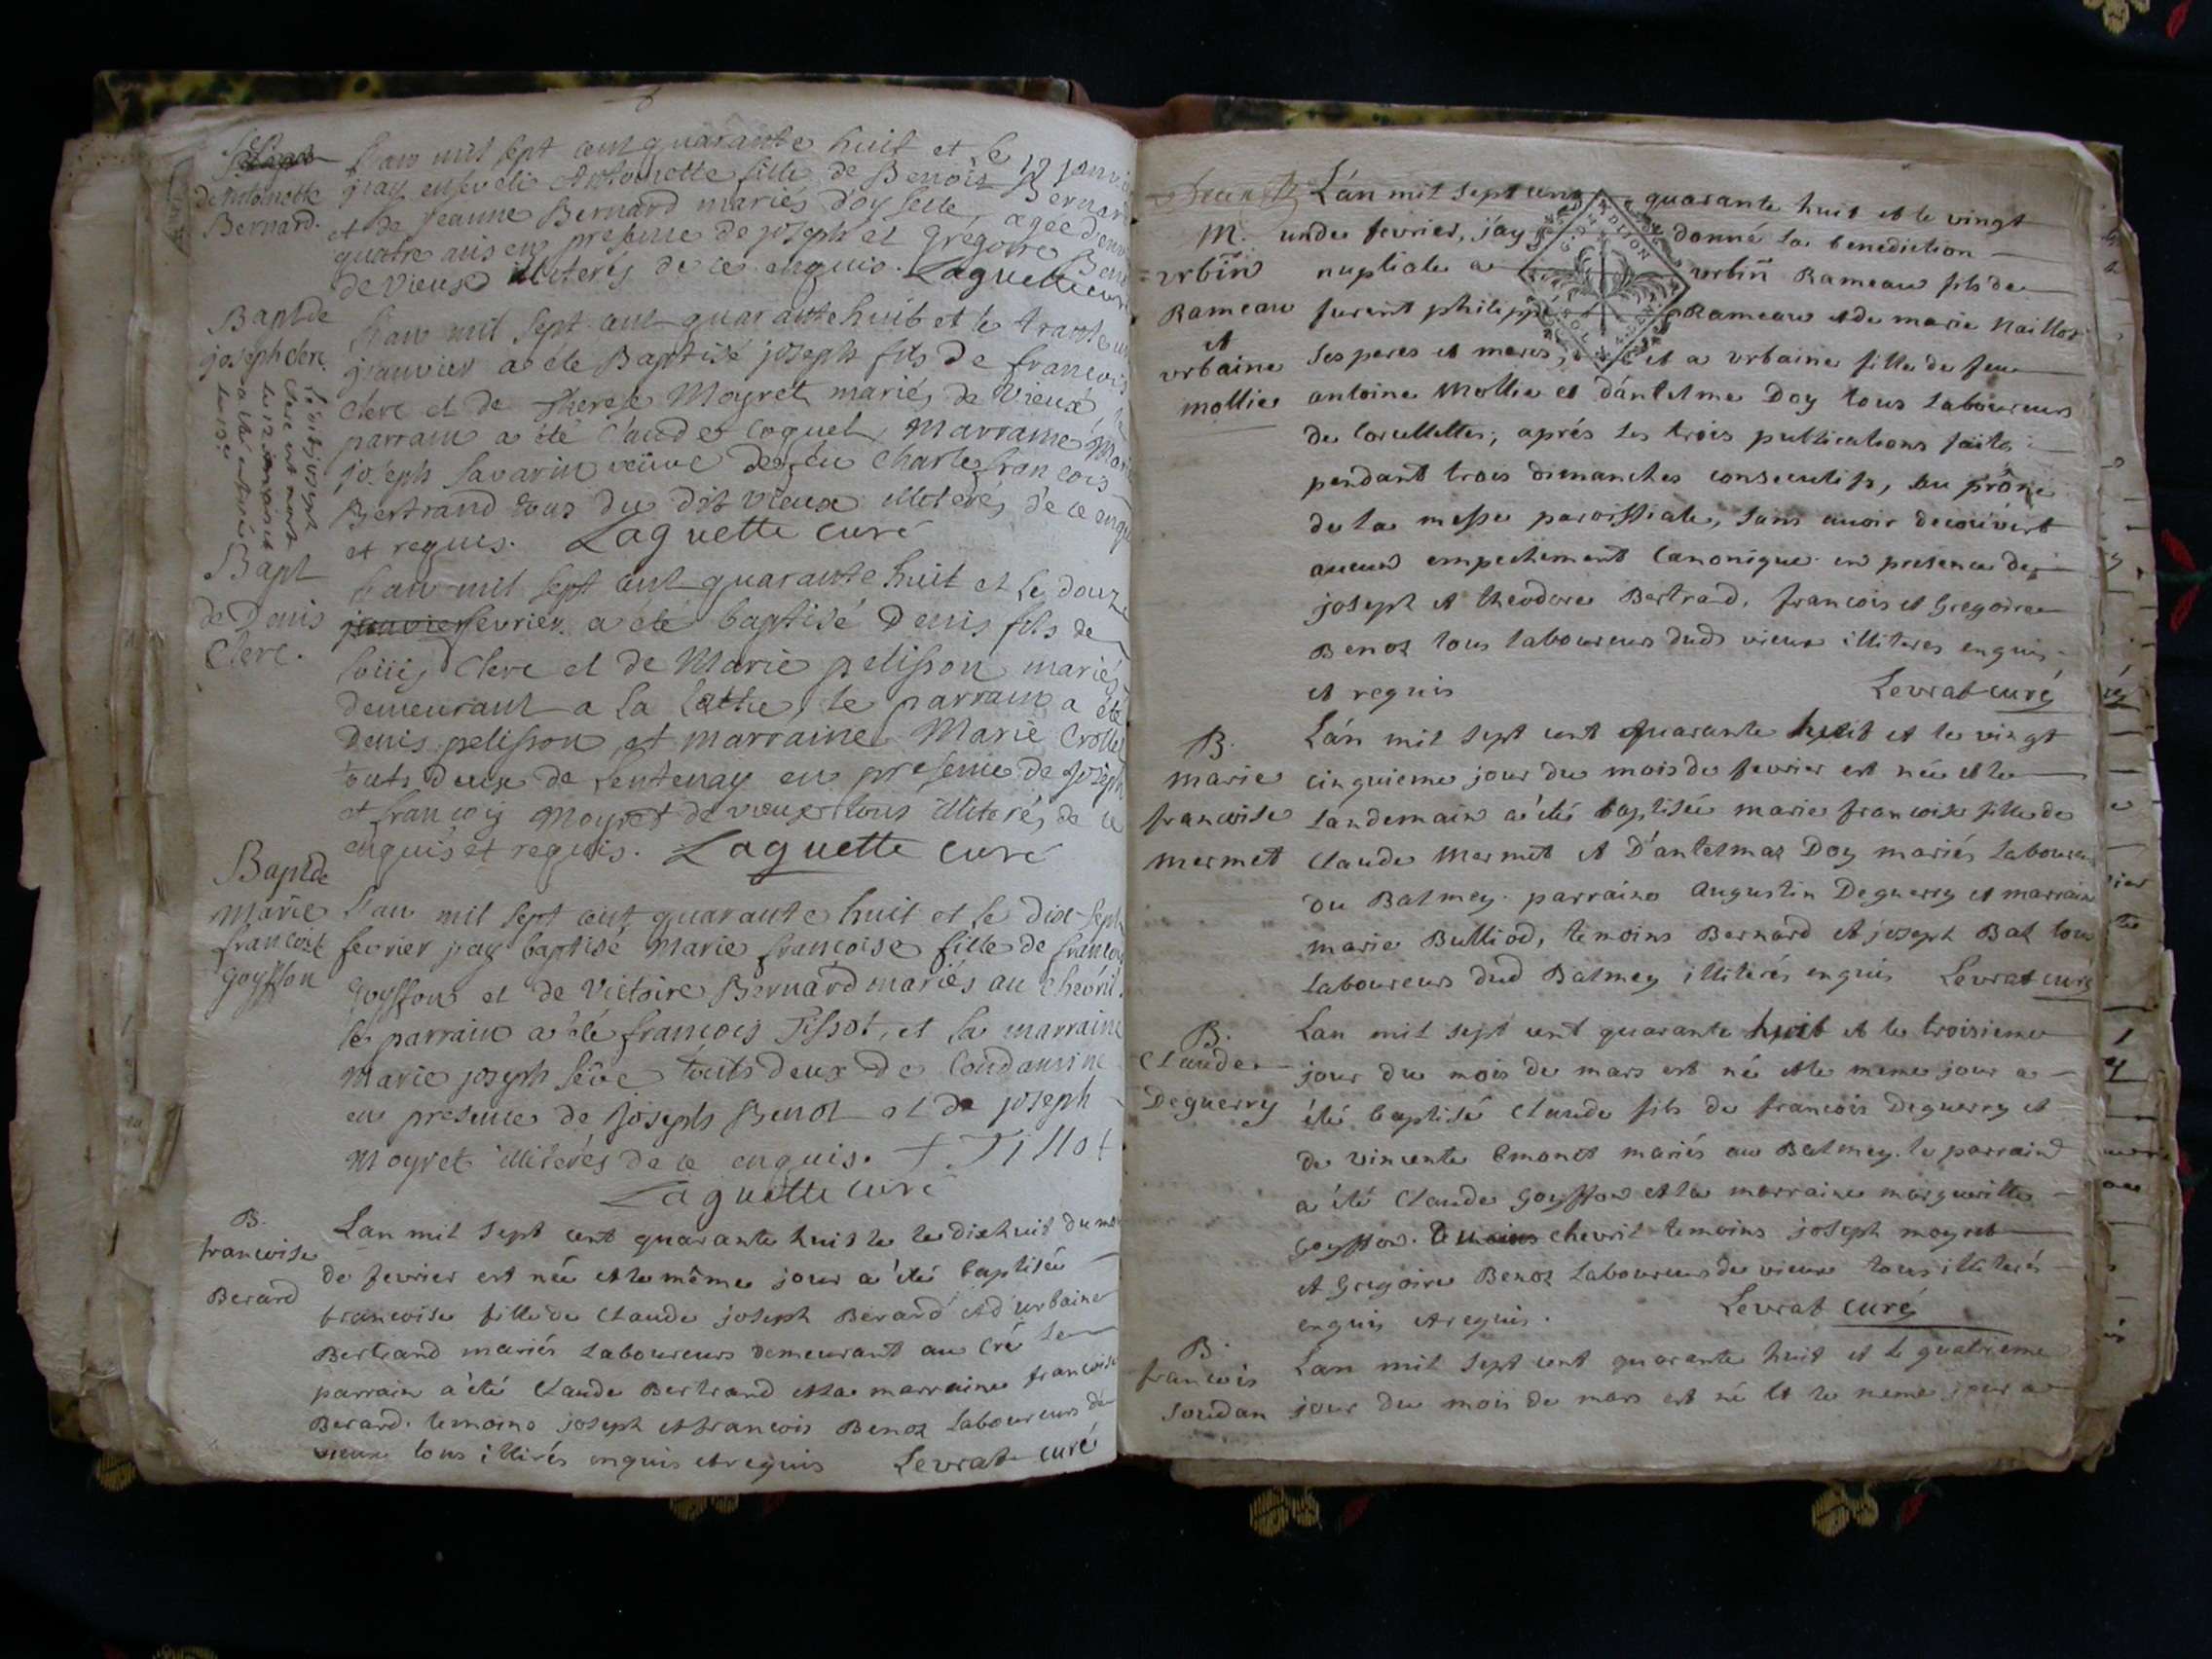 de Antoinette
Bernard.
L'an mil sept cent quarante huit et le 19 janvier
j'ay enseveli Antoinette fille de Benoit Bernard
et de Jeanne Bernard mariés d'oyselle, agée d'env
quatre ans en presence de joseph et Gregoire Benoz
de Vieux illiterés de ce enquis. Laguette curé
Bapt de
joseph clerc.
Le dit joseph
clerc est mort
le 12 janvier et
a été enseveli
le 13e
L'an mil sept cent quarante huit et le trante un
janvier a été Baptisé joseph fils de francois
clerc et de Therese Moyret mariés de Vieux le
parrain a été Claude Coquet, Marraine Marie
joseph Savarin veuve de feu Charle francois
Bertrand tous du dit Vieux illiterés de ce enquis
et requis. Laguette curé
Bapt
de Denis
Clerc.
L'an mil sept cent quarante huit et le douze
janvier fevrier a été baptisé Denis fils de
loüis Clerc et de Marie pelisson mariés
demeurant a la , le parrain a été
Denis pelisson et marraine Marie Crollet
touts deux de Lentenay en presence de joseph
et francois Moyret de vieux tous illiterés de ce
enquis et requis. Laguette curé
Bapt de
Marie
francoise
goysson
L'an mil sept cent quarante huit et le dix-sept
fevrier j'ay baptisé Marie francoise fille de francois
Goysson et de Victoire Bernard mariés au chevril.
le parrain a été francois Tissot, et la marraine
Marie joseph séve touts deux de Condamine
en presence de joseph Benoz et de joseph
Moyret illiterés de ce enquis. + Tillot
Laguette curé
B.
francoise
Berard
Lan mil sept cent quarante huit le le dixhuit du moi
de fevrier est née et le même jour a été baptisée
francoise fille de Claude joseph Berard et d'urbaine
Bertrand mariés Laboureurs demeurant au Cré Le
parrain a été Claude Bertrand et la marraine francoise
Berard. temoins joseph et francois Benoz Laboureurs de
vieux tous illirés enquis et requis Levrat curé
M.
urbin
Rameau
et
urbaine
mollie
L'án mil sept cens quarante huit et le vingt
un de fevrier, j'ay donné la benediction
nuptiale a urbin Rameau fils de
furent philippe Rameau et de marie Naillod
ses peres et meres, et a urbaine fille de feu
antoine Mollie et d'antelme Doy tous Laboureurs
de Corcellettes, aprés les trois publications faites
pendant trois dimanches consecutifs, au prône
de la messe paroissiale, sans avoir decouvert
aucun empechement Canonique en presence de
joseph et theodore Bertrand, francois et Gregoire
Benoz tous laboureurs dud vieux illiteres enquis
et requis Levrat curé
B.
marie
francoise
mermet
L'án mil sept cent quarante huit et le vingt
cinquieme jour du mois de fevrier est née et le
Landemain a été baptisée marie francoise fille de
Claude Mermet et D'antelmaz Doy mariés Laboureurs
du Balmey. parrains augustin Deguerry et marraine
marie Bulliod, temoins Bernard et joseph Bal tous
Laboureurs dud Balmey illiterés enquis Levrat curé
B.
Claude
Deguerry
Lan mil sept cent quarante huit et le troisieme
jour du mois de mars est né et le meme jour a
été baptisé Claude fils de francois Deguerry et
de vincente Emonet mariés au Balmey. le parrain
a été Claude Goyffon et la marraine marguerille
Goyffon. chevril temoins joseph moyret
et Gregoire Benoz Laboureurs de vieux tous illiterés
enquis et requis. Levrat curé
B.
francois
soudan
Lan mil sept cent quarante huit et le quatrieme
jour du mois de mars est né et le meme jour a